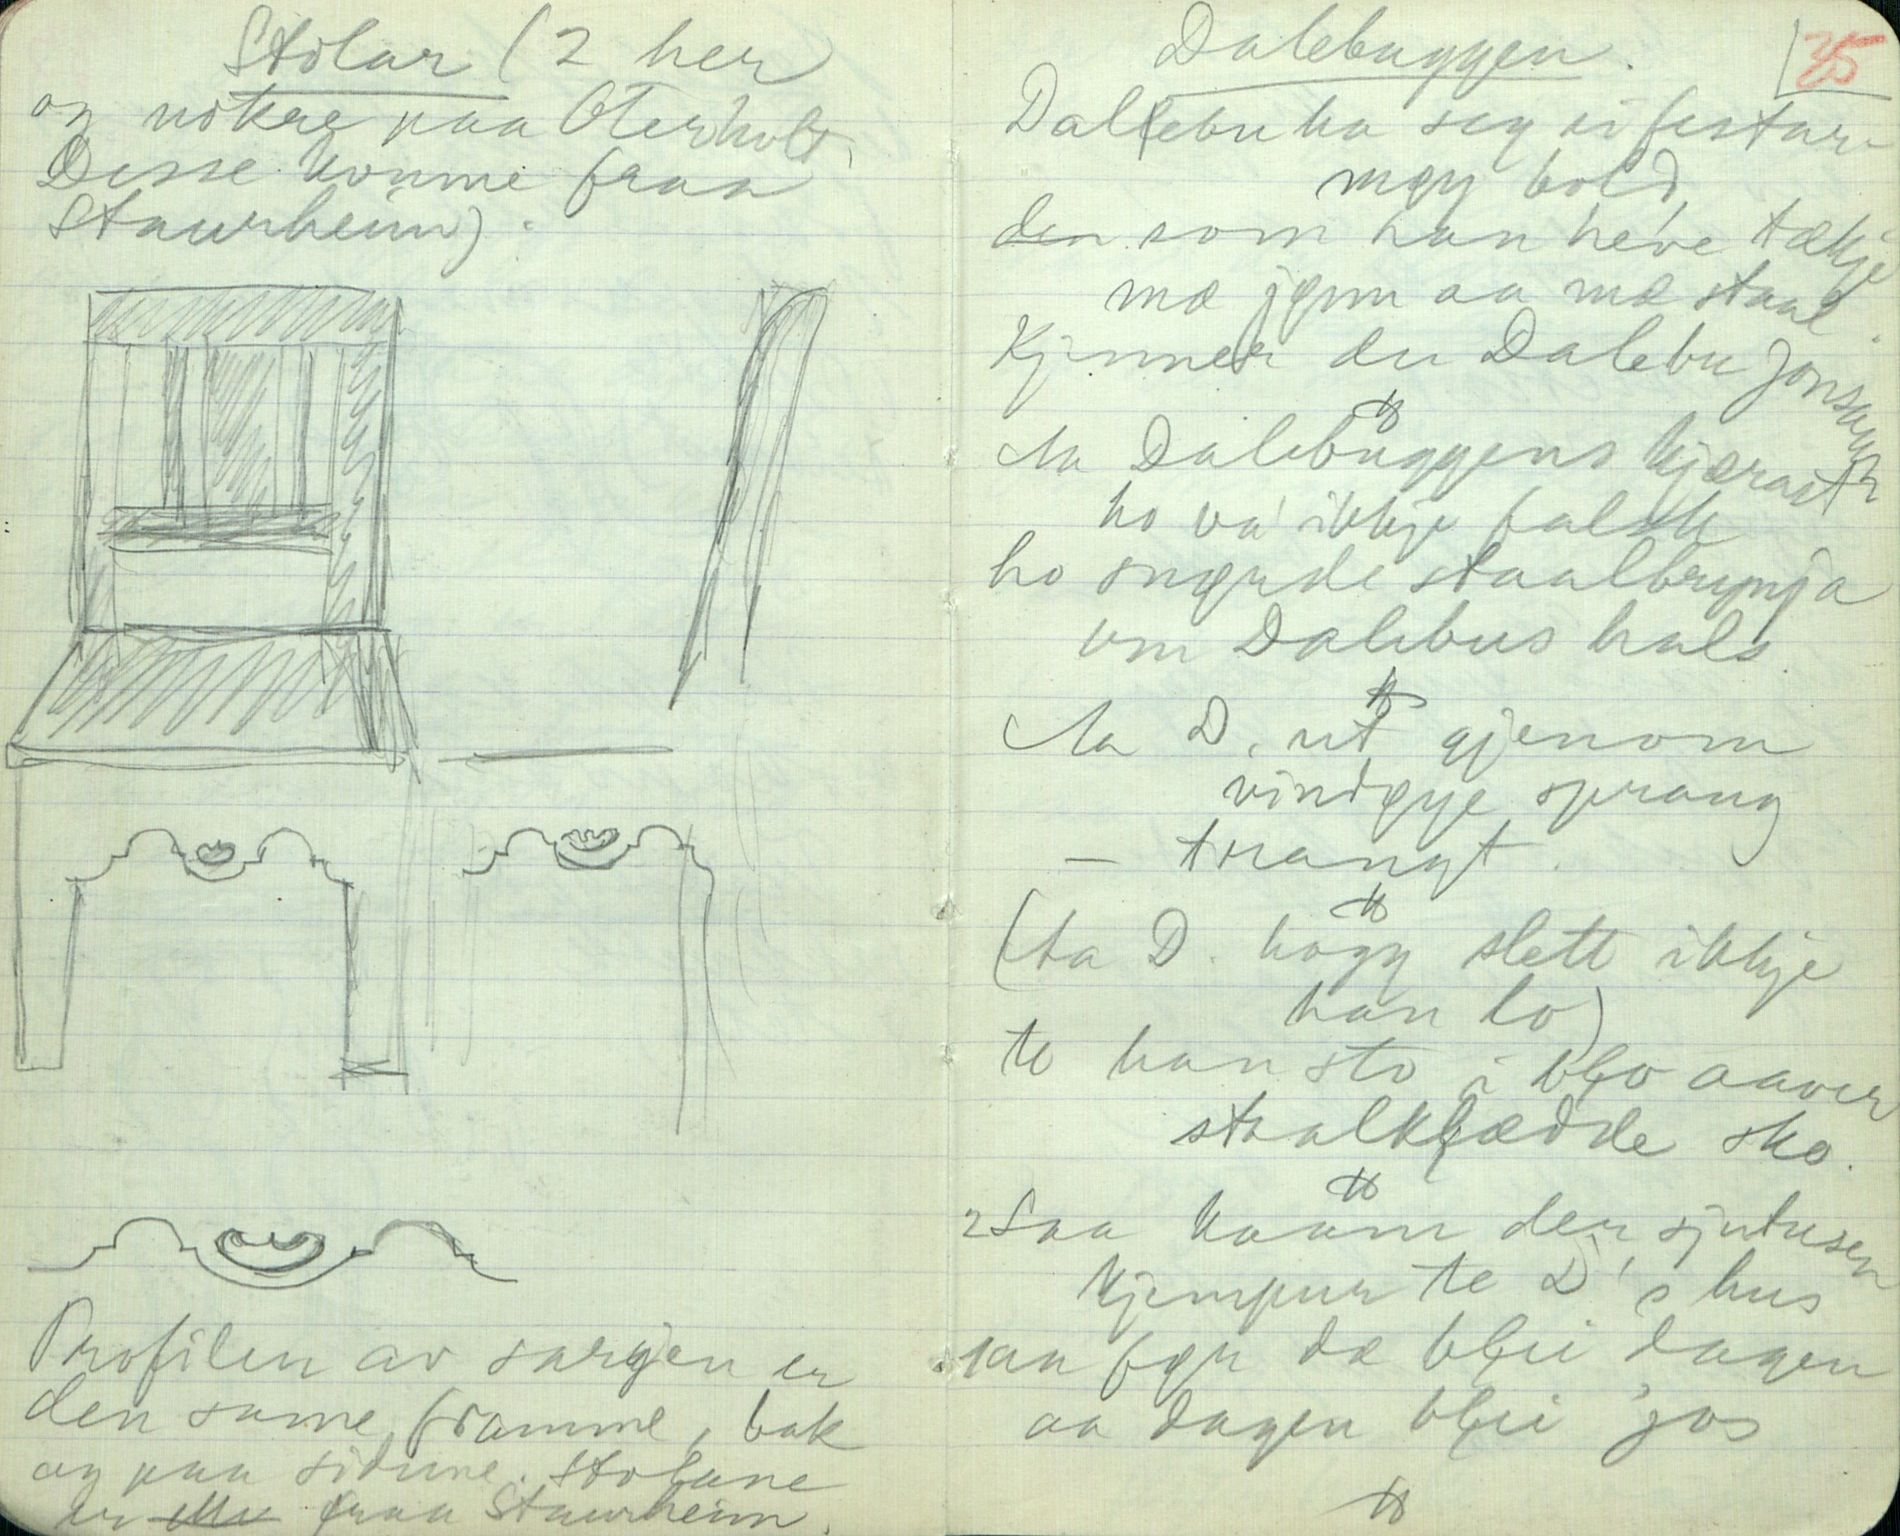 Stolar (2 her
og nokre paa Oterholt.
Desse komme fraa
Staurheim).
Profilen av sargjen er
den same framme, bak
og paa sidune. Stolane
er fraa Staurheim.
Dalebuggen.
35
Dalebu ha seg ei festar-
møy bold,
den som han heve tækje
mæ jønn aa mæ staal.
Kjenner du Dalebu Jonsaugh
Aa Dalebuggens kjærast
ho va' ikkje falsk
ho snørde staalbrynja
um Dalebus hals.
Aa D. ut gjenom
vindøye sprang
— trangt.
(Aa D. høgg slett ikkje
han lo)
te han sto i blo aaver
staalklædde sko.
2 Saa kaam der sjutusen
kjempur te D's hus
1 aa før dæ blei dagen
aa dagen blei jos